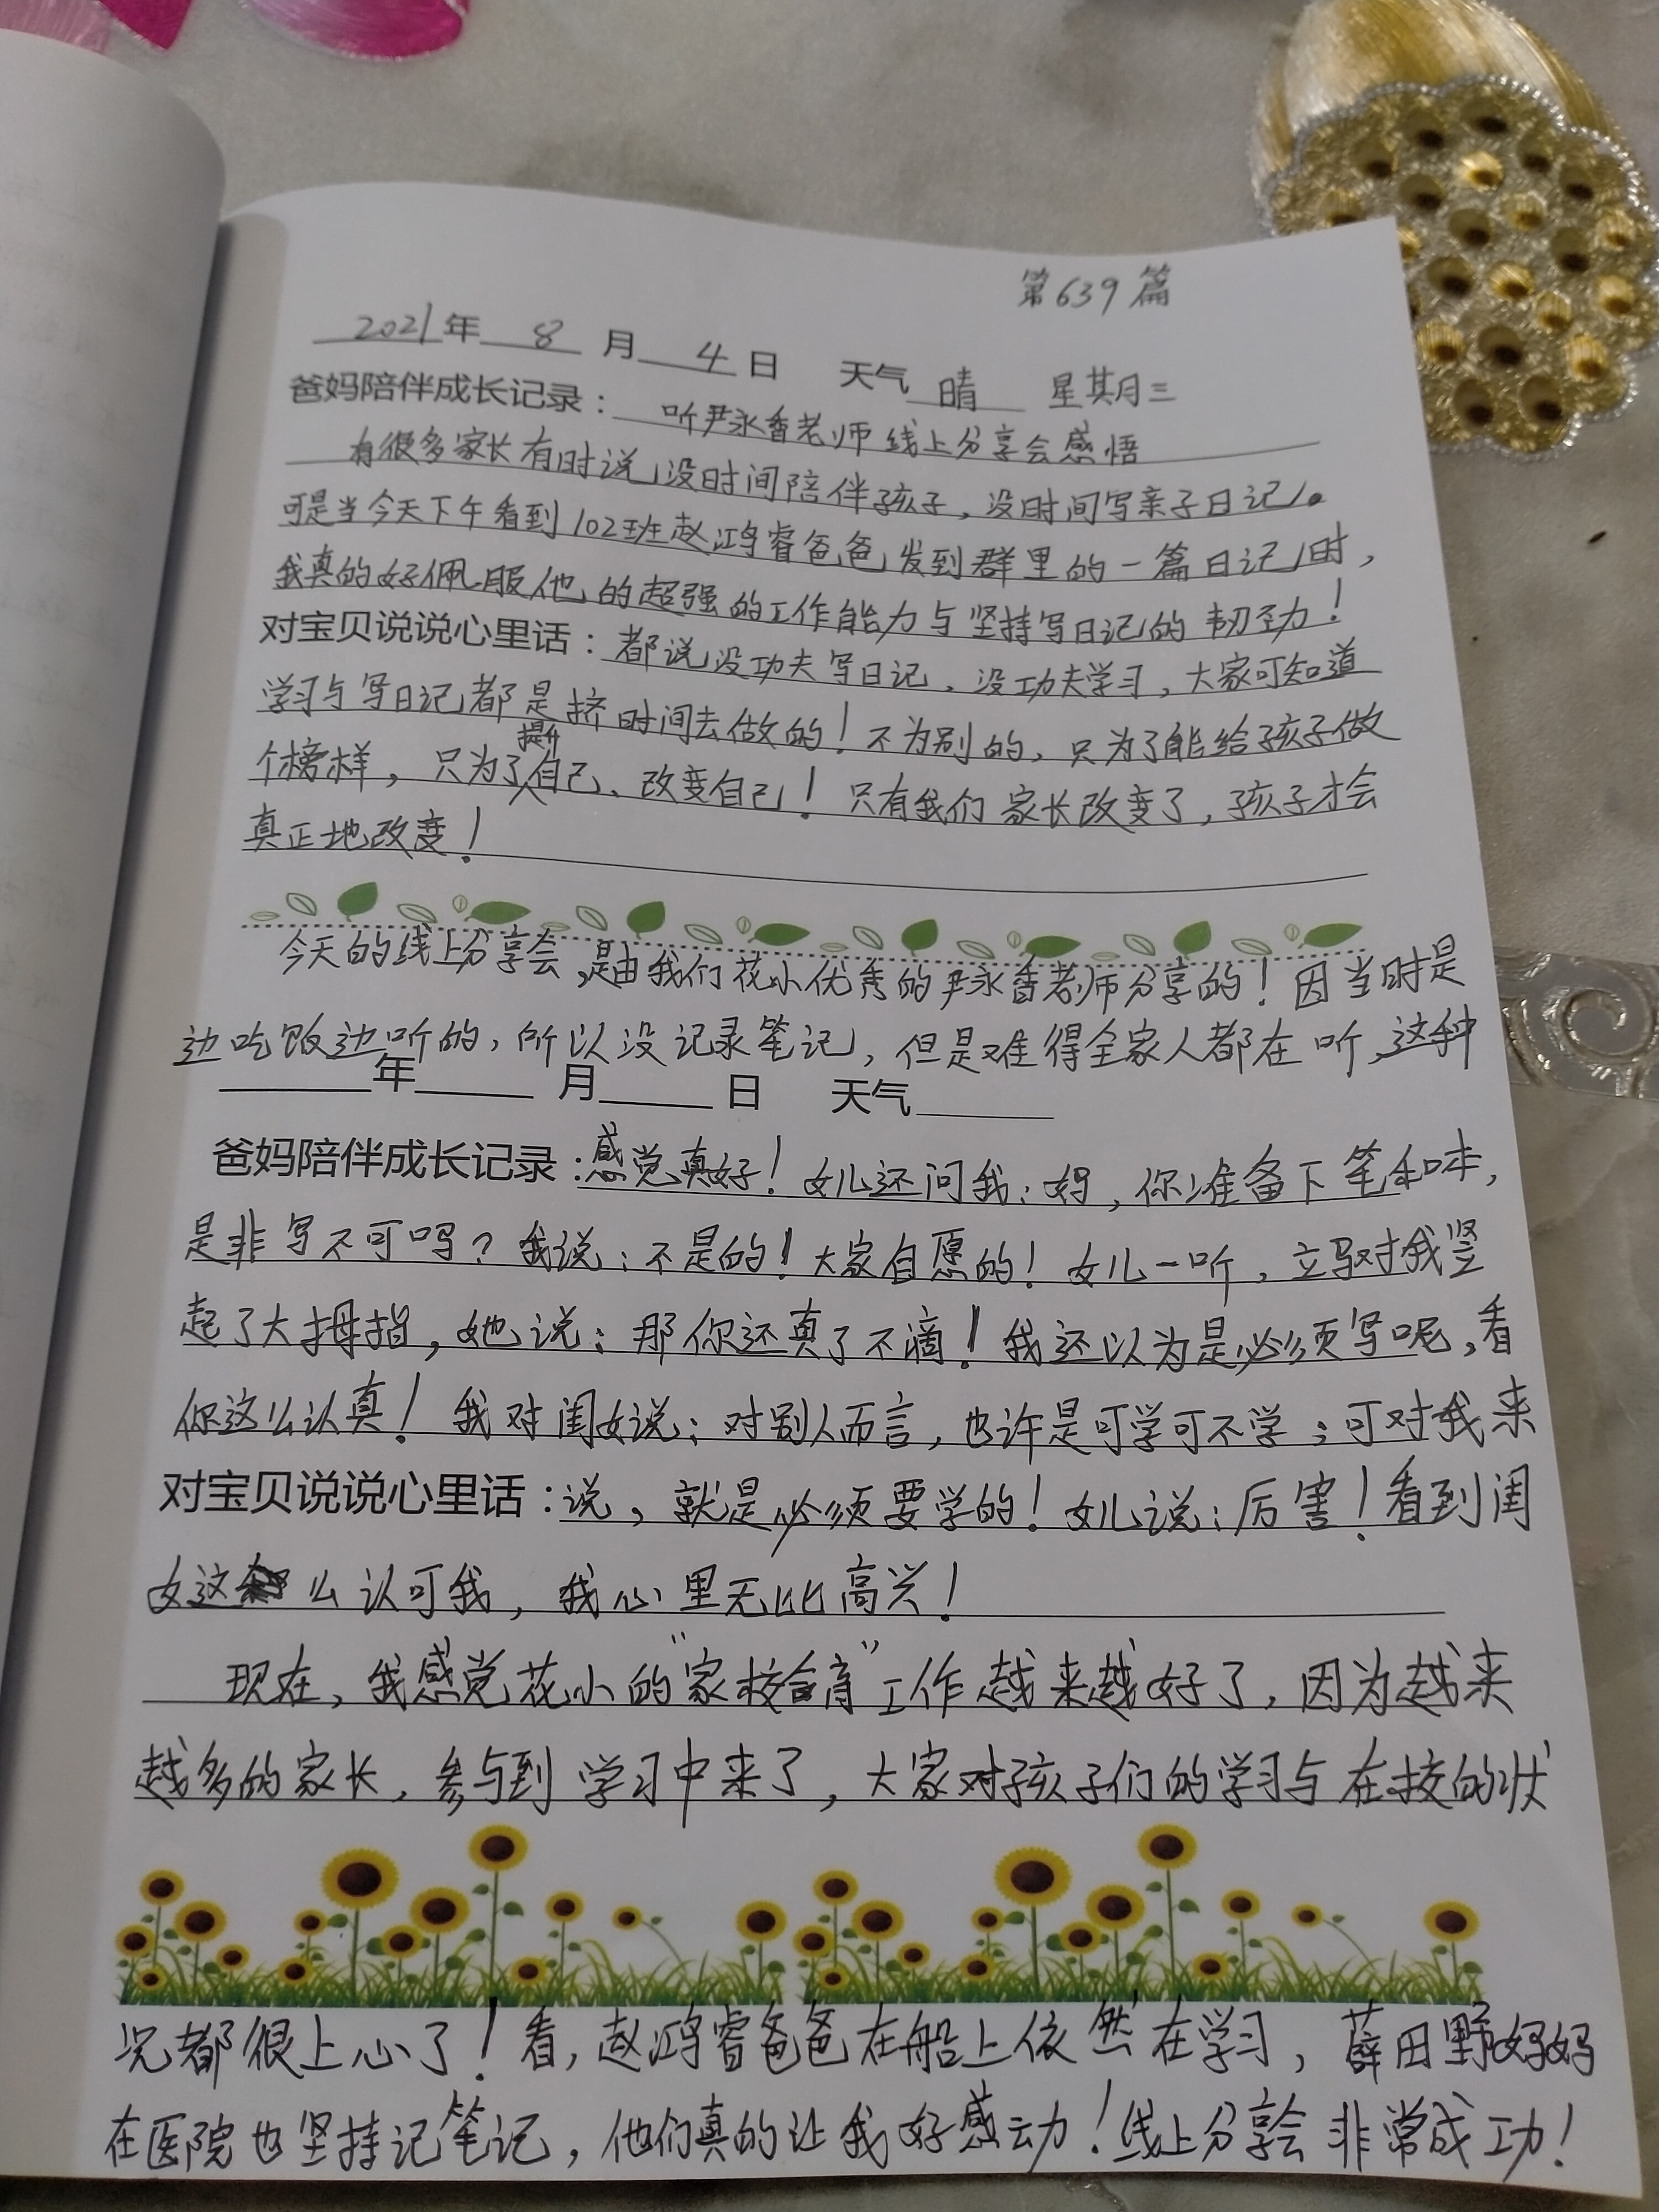 第639篇
2021年 8 月 4 日 天气 晴 星期三
爸妈陪伴成长记录：听尹永香老师线上分享会感悟
有很多家长有时说没时间陪伴孩子，没时间写亲子日记。
可是当今天下午看到102班赵鸿睿爸爸发到群里的一篇日记时，
我真的好佩服他的超强的工作能力与坚持写日记的韧劲！
对宝贝说说心里话：都说没功夫写日记，没功夫学习，大家可知道
学习与写日记都是挤时间去做的！不为别的，只为了能给孩子做
个榜样，只为了提升自己、改变自己！只有我们家长改变了，孩子才会
真正地改变！
今天的线上分享会，是由我们花小优秀的尹永香老师分享的！因当时是
边吃饭边听的，所以没记录笔记，但是难得全家人都在听，这种
年 月 日 天气
爸妈陪伴成长记录：感觉真好！女儿还问我：妈，你准备下笔和本，
是非写不可吗？我说：不是的！大家自愿的！女儿一听，立马对我竖
起了大拇指，她说：那你还真了不滴！我还以为是必须写呢，看
你这么认真！我对闺女说：对别人而言，也许是可学可不学；可对我来
对宝贝说说心里话：说，就是必须要学的！女儿说：厉害！看到闺
女这么认可我，我心里无比高兴！
现在，我感觉花小的“家校合育”工作越来越好了，因为越来
越多的家长，参与到学习中来了，大家对孩子们的学习与在校的状
况都很上心了！看，赵鸿睿爸爸在船上依然在学习，薛田野妈妈
在医院也坚持记笔记，他们真的让我好感动！线上分享会非常成功！